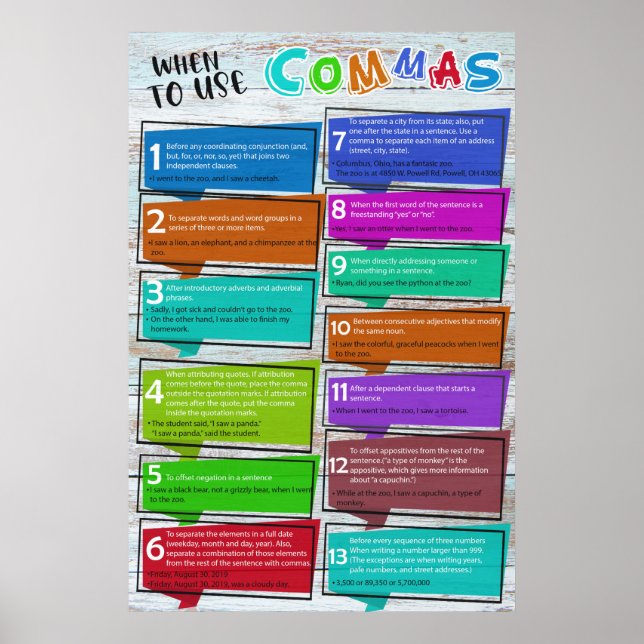 WHEN
TO USE
COMMAS
1
Before any coordinating conjunction (and,
but, for, or, nor, so, yet) that joins two
independent clauses.
•I went to the zoo, and I saw a cheetah.
2
To separate words and word groups in a
series of three or more items.
•I saw a lion, an elephant, and a chimpanzee at the
zoo.
3
After introductory adverbs and adverbial
phrases.
• Sadly, I got sick and couldn't go to the zoo.
• On the other hand, I was able to finish my
homework.
4
When attributing quotes. If attribution
comes before the quote, place the comma
outside the quotation marks. If attribution
comes after the quote, put the comma
inside the quotation marks.
• The student said, "I saw a panda."
"I saw a panda," said the student.
5
To offset negation in a sentence
•I saw a black bear, not a grizzly bear, when I went
to the zoo.
6
To separate the elements in a full date
(weekday, month and day, year). Also,
separate a combination of those elements
from the rest of the sentence with commas.
•Friday, August 30, 2019
•Friday, August 30, 2019, was a cloudy day.
7
To separete a city from its state; also, put
one after the state in a sentence. Use a
comma to separate each item of an address
(street, city, state).
• Columbus, Ohio, has a fantasic zoo.
The zoo is at 4850 W. Powell Rd, Powell, OH 43065.
8
When the first word of the sentence is a
freestanding "yes" or "no".
•Yes, I saw an otter when I went to the zoo.
9
When directly addressing someone or
something in a sentence.
• Ryan, did you see the python at the zoo?
10
Between consecutive adjectives that modify
the same noun.
•I saw the colorful, graceful peacocks when I went
to the zoo.
11
After a dependent clause that starts a
sentence.
•When I went to the zoo, I saw a tortoise.
12
To offset appositives from the rest of the
sentence.("a type of monkey" is the
appositive, which gives more information
about "a capuchin.")
•While at the zoo, I saw a capuchin, a type of
monkey.
13
Before every sequence of three numbers
When writing a number larger than 999.
(The exceptions are when writing years,
pale numbers, and street addresses.)
•3,500 or 89,350 or 5,700,000